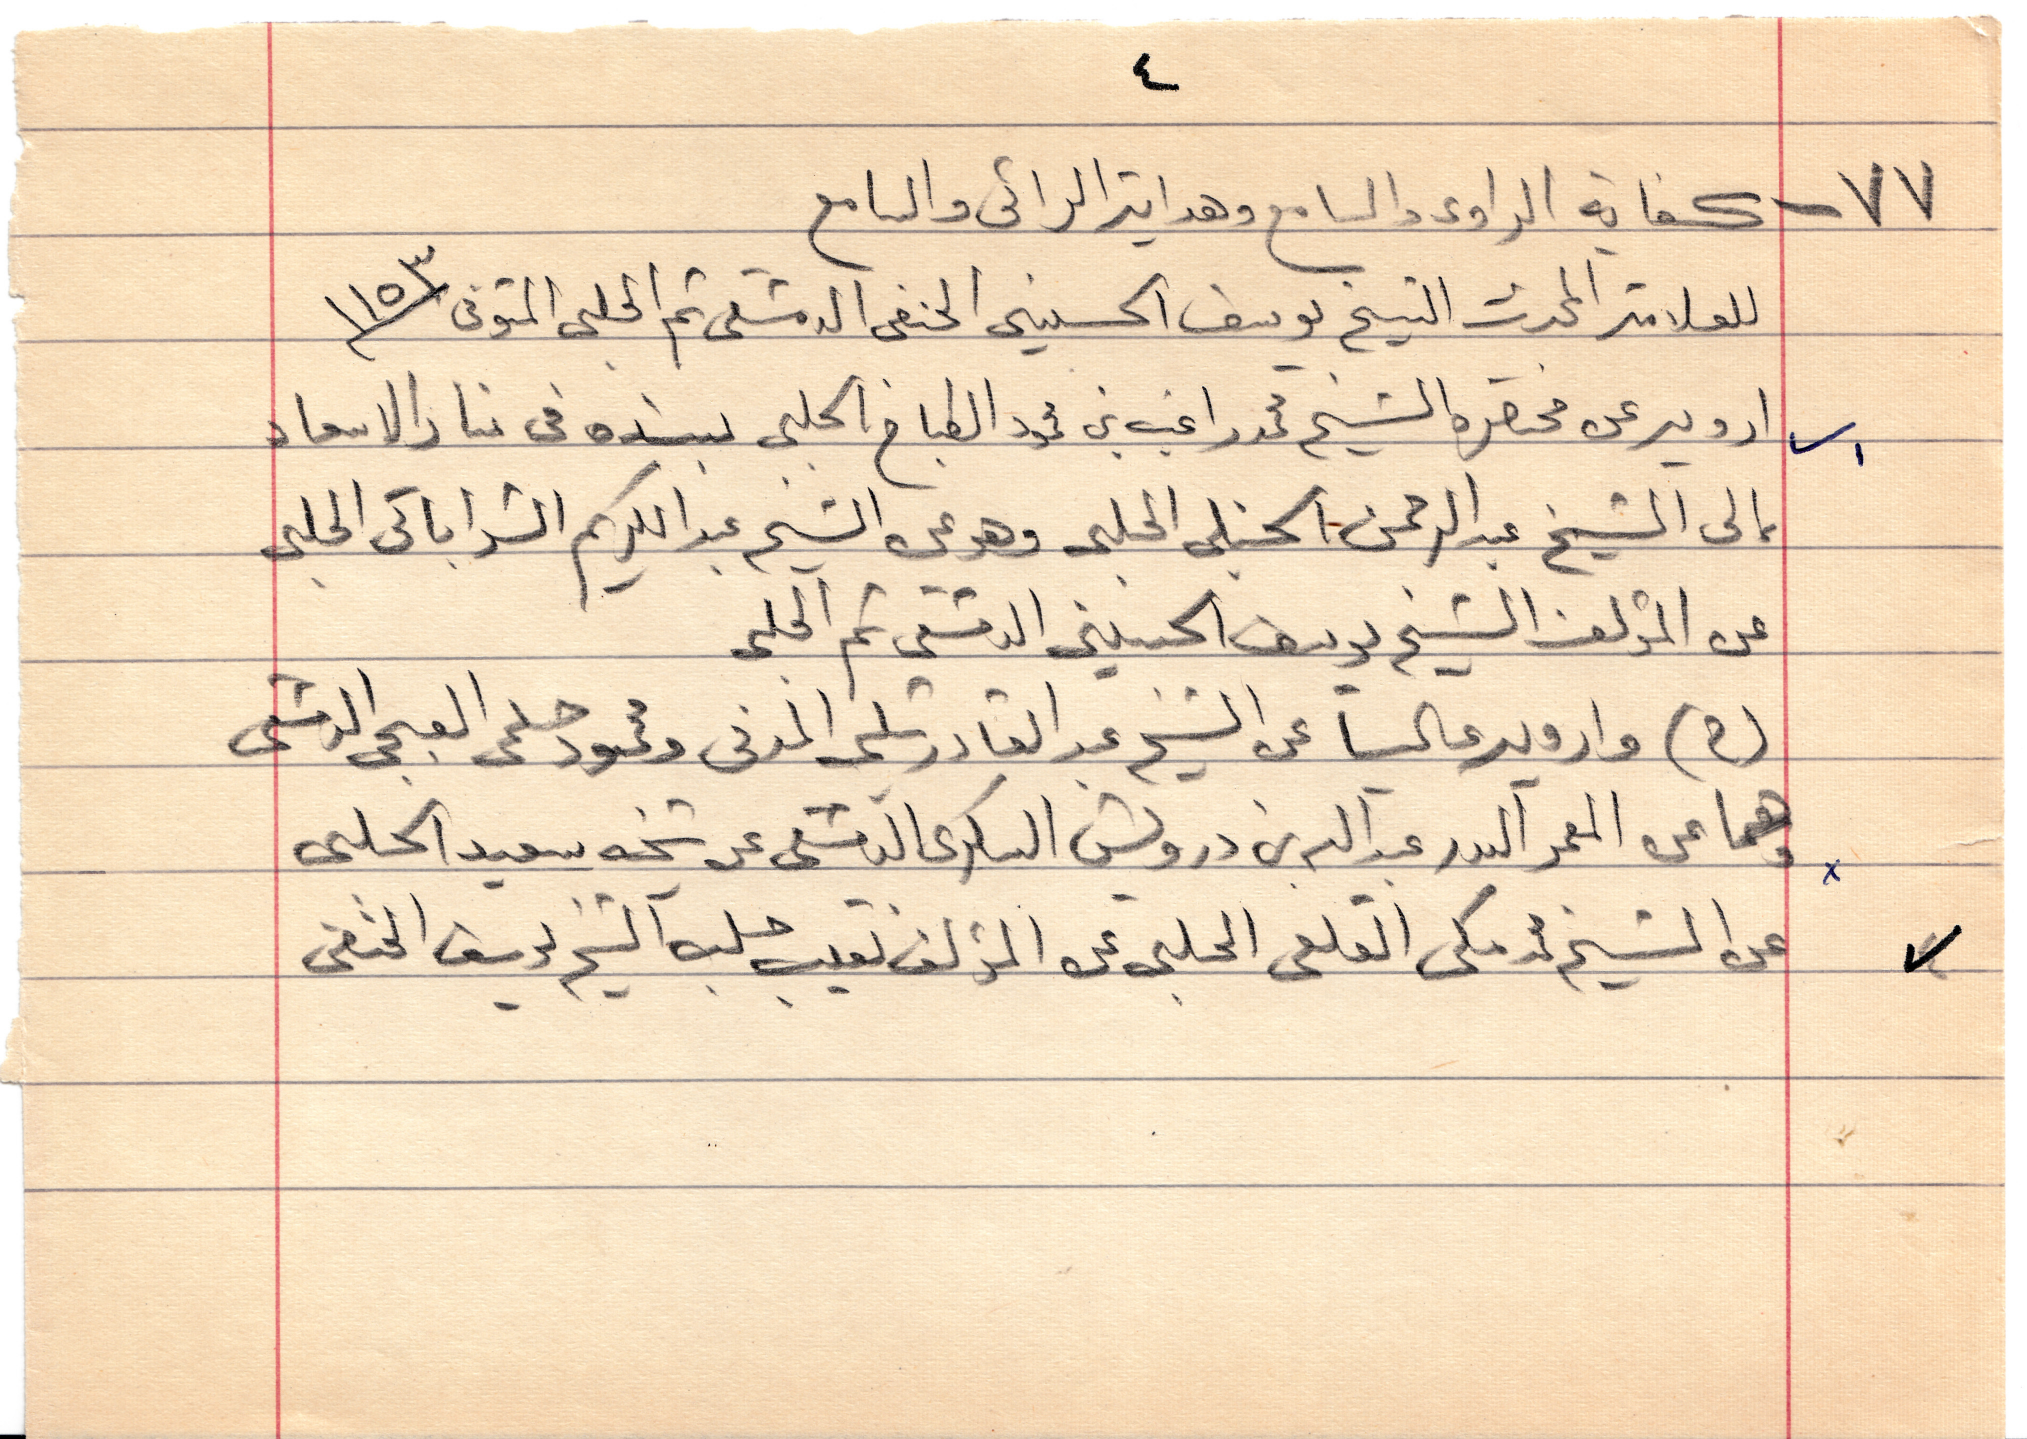 ٤
٧٧ - كفاية الراوى والسامع وهداية الرائى والسامع
للعلامة المحدث الشيخ يوسف الحسينى الحنفى الدمشقى ثم الحلبى المتوفى ١١٥٣
ارويه عن مختصره الشيخ محمد راغب بن محمود الطباخ الحلبى بسنده فى الاسعاد
الى الشيخ عبد الرحمن الحنبلى الحلبى وهو عن الشيخ عبد الكريم الشراباتى الحلبى
عن المؤلف الشيخ يوسف الحسينى الدمشقى ثم الحلبى
(ح) وارويه عاليا عن الشيخ عبد القادر شلبى المدنى ومحمود حلمى الدمشقى
وهما عن المعمر البدر عبد الله بن درويش السكرى الدمشقى عن شيخه سعيد الحلبى
عن الشيخ محمد مكى القلعى الحلبى عن المؤلف نقيب حلب الشيخ يوسف الحنفى